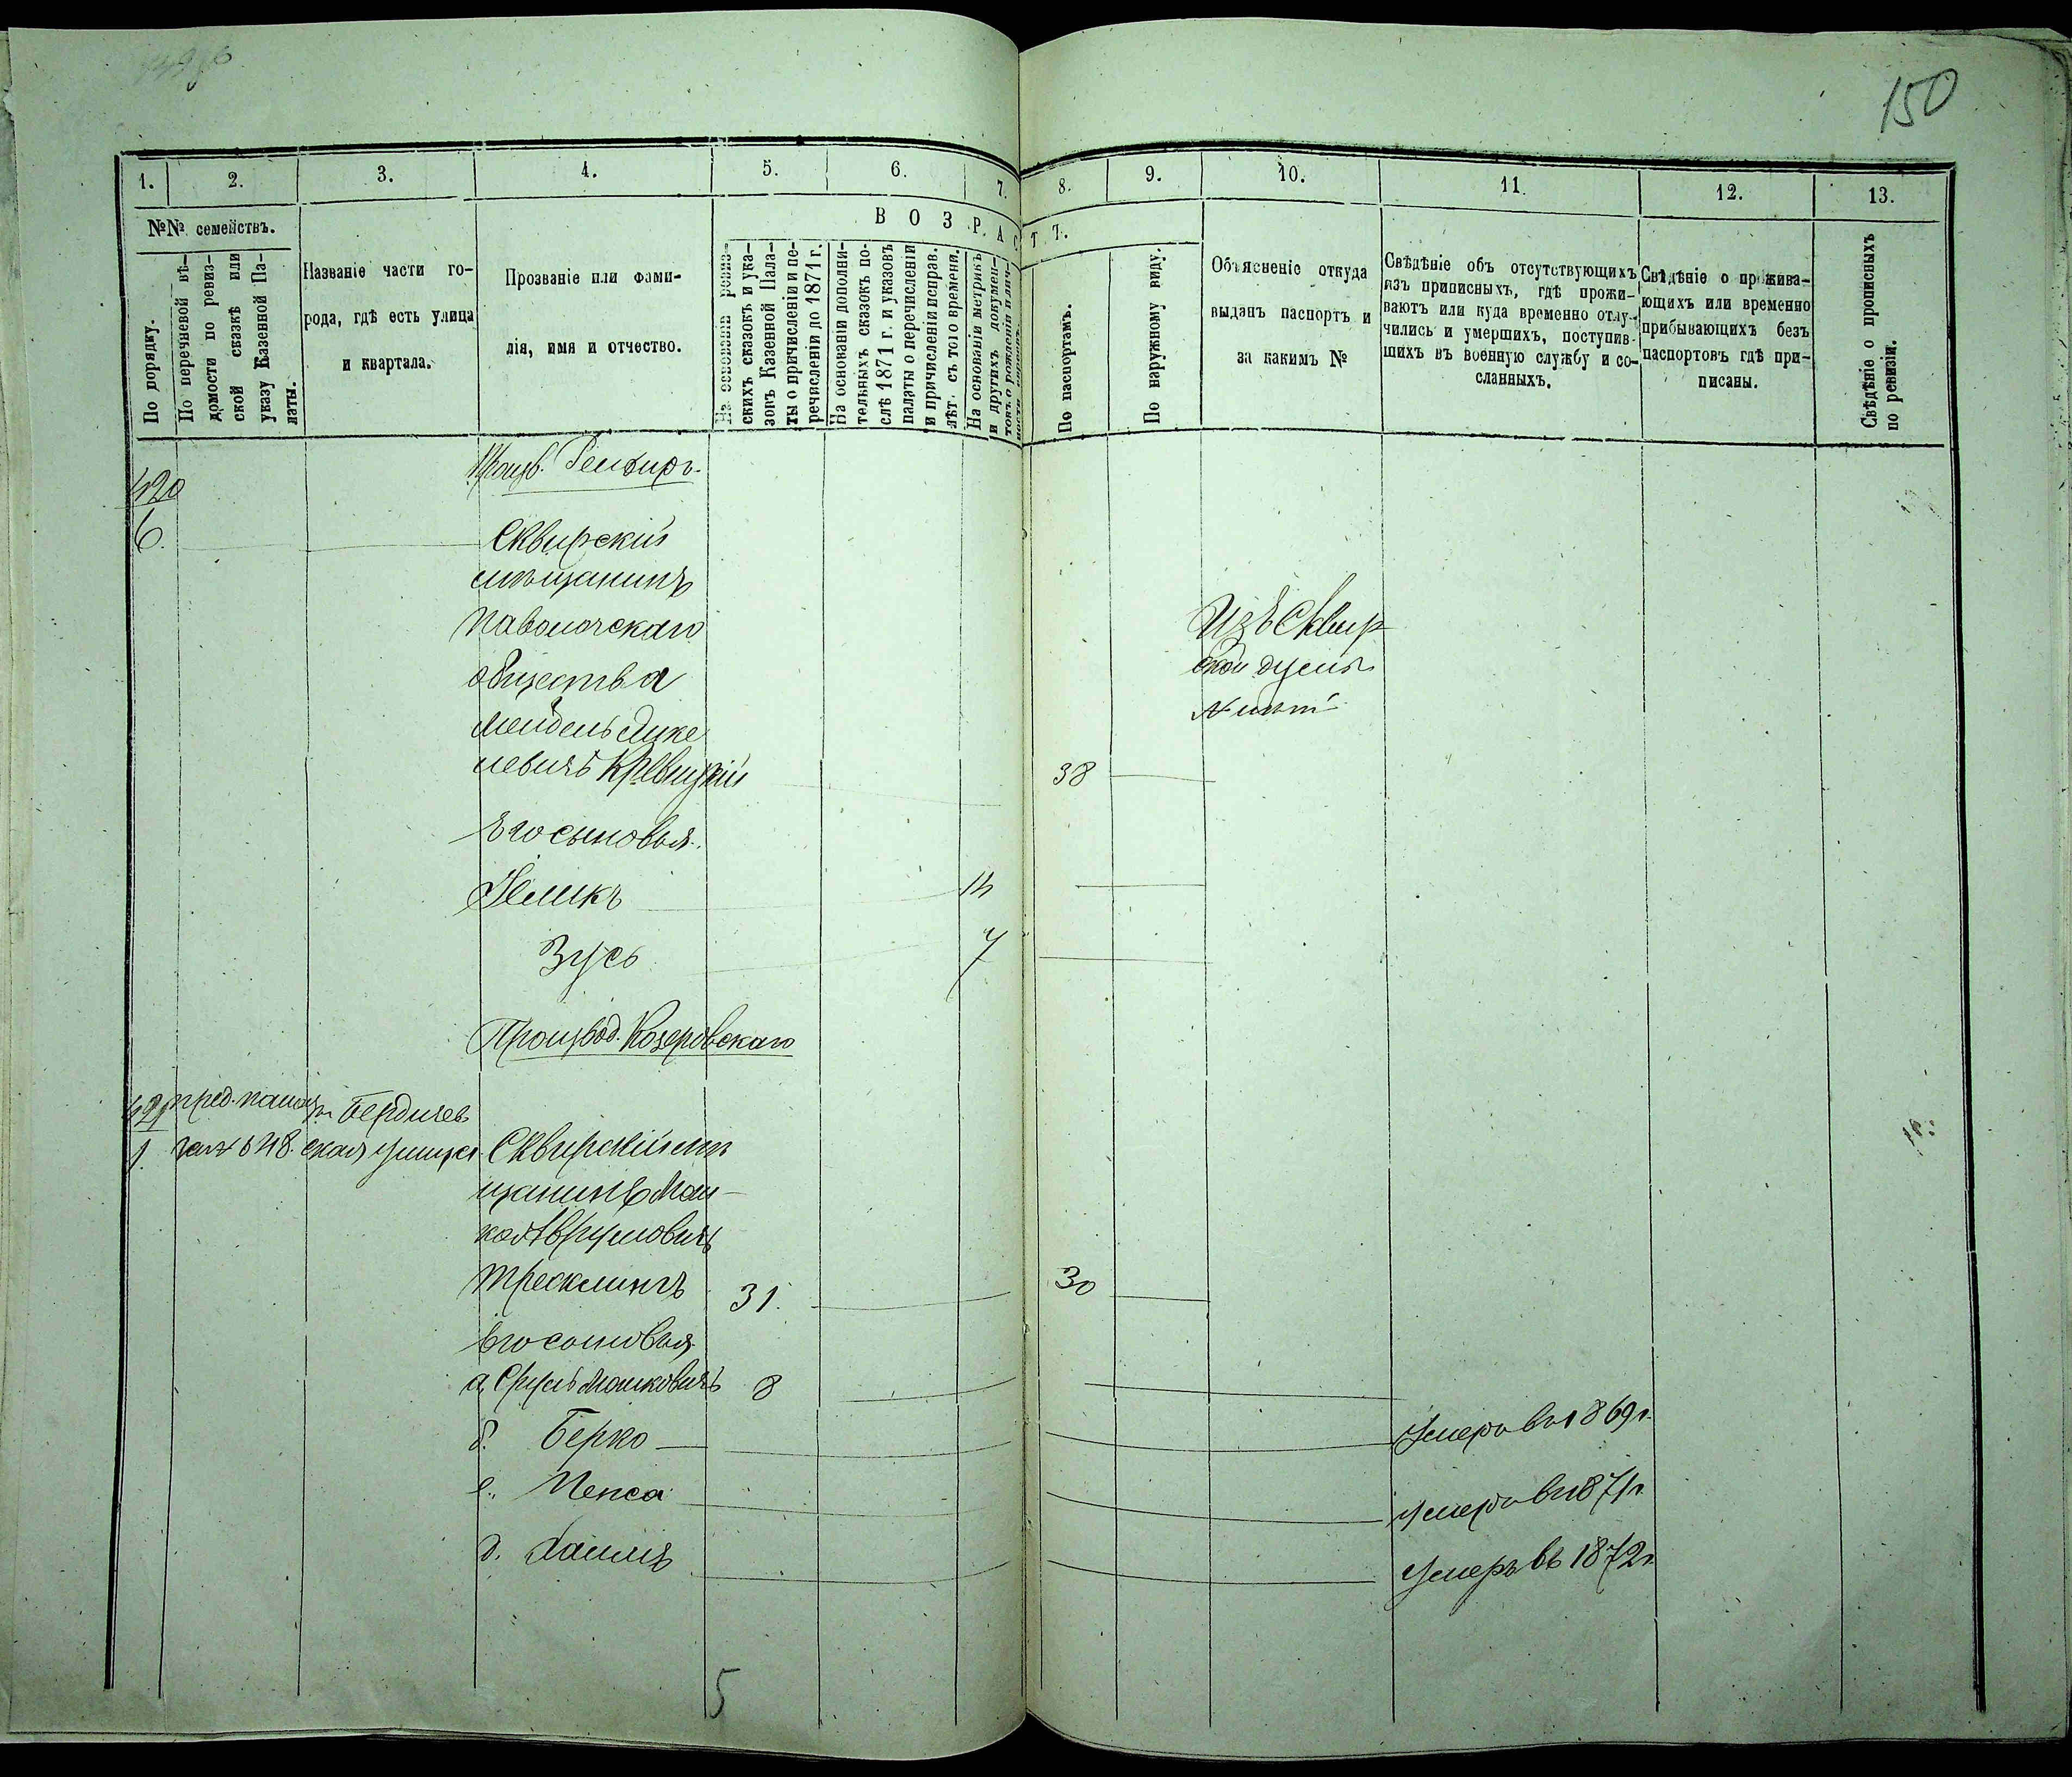 150
1.
2.
3.
4.
5.
6.
7.
8.
9.
10.
11.
12.
13.
№№ семействъ.
По порядку.
По перечневой вѣ-
домости по ревиз-
ской сказкѣ или
указу Казенной Па-
латы.
Названіе части го-
рода, гдѣ есть улица
и квартала.
Прозваніе или фами-
лія, имя и отчество.
ВОЗРАСТЪ.
На основаніи ревиз-
скихъ сказокъ и ука-
зовъ Казенной Пала-
ты о причисленіи и пе-
речисленіи до 1871 г.
На основаніи дополни-
тельныхъ сказокъ по-
слѣ 1871 г. и указовъ
палаты о перечисленіи
и причисленіи исправ.
лѣт. съ того времени.
На основаніи метрикъ
и другихъ докумен-
товъ о рожденіи и лич-
По паспортамъ.
По наружному виду.
Объясненіе откуда
выданъ паспортъ и
за какимъ №
Свѣдѣніе объ отсутствующихъ
изъ приписныхъ, гдѣ прожи-
ваютъ или куда временно отлу-
чились и умершихъ, поступив-
шихъ въ военную службу и со-
сланныхъ.
Свѣдѣніе о прожива-
ющихъ или временно
прибывающихъ безъ
паспортовъ гдѣ при-
писаны.
Свѣдѣніе о прописныхъ
по ревизіи.
420
6.
Сквирскій
мѣщанинъ
Паволочскаго
общества
Мендель
левичъ 38
Изъ Сквир
ской думы
№ нѣтъ
Его сыновья.
Зеликъ 14
Зусь 7
Производ. Козеровскаго
421
1.
Бердичев
ская улица
Сквирскій мѣ
щанинъ Мош-
ко Аврумовичъ
31. 30
Его сыновья.
а, Срусь Мошковичъ 8
б. Берко Умеръ въ 1869 г.
Умеръ въ 1871 г.
д. Хаимъ Умеръ въ 1872 г.
5